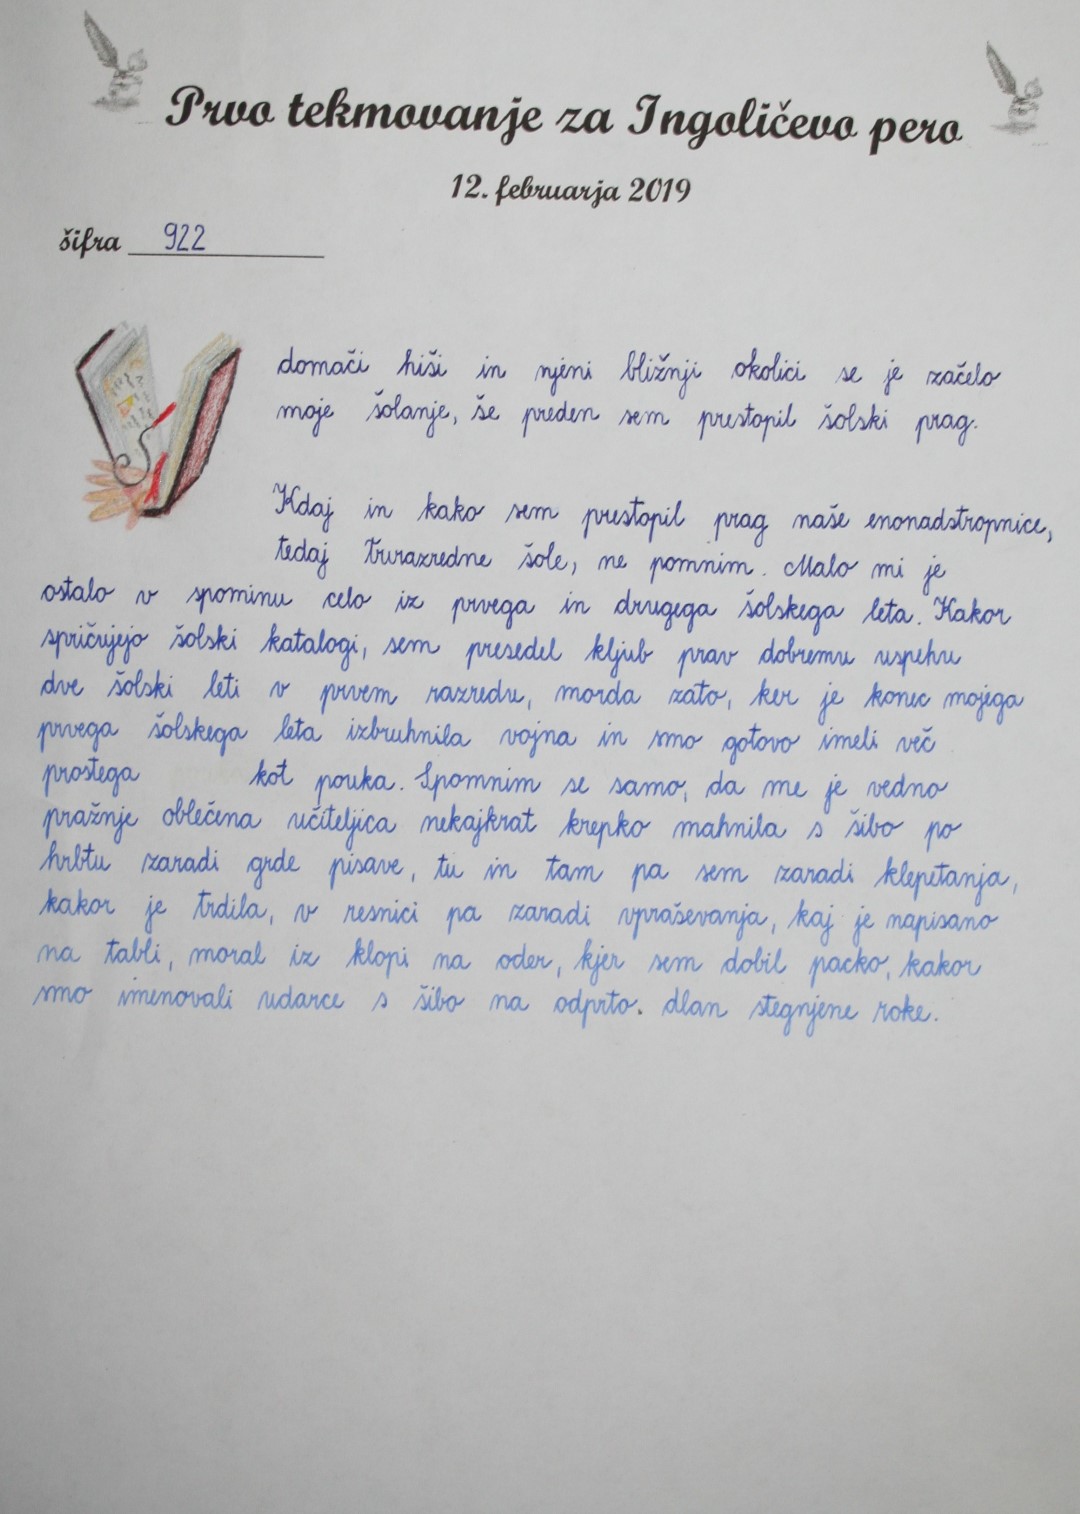 Prvo tekmovanje za Ingoličevo pero
12. februarja 2019
šifra 922
domači hiši in njeni bližnji okolici se je začelo
moje šolanje, še preden sem prestopil šolski prag.
Kdaj in kako sem prestopil prag naše enonadstropnice,
tedaj trirazredne šole, ne pomnim. Malo mi je
ostalo v spominu celo iz prvega in drugega šolskega leta. Kakor
spričujejo šolski katalogi, sem presedel kljub prav dobremu uspehu
dve šolski leti v prvem razredu, morda zato, ker je konec mojega
prvega šolskega leta izbruhnila vojna in smo gotovo imeli več
prostega kot pouka. Spomnim se samo, da me je vedno
pražnje oblečena učiteljica nekajkrat krepko mahnila s šibo po
hrbtu zaradi grde pisave, tu in tam pa sem zaradi klepetanja,
kakor je trdila, v resnici pa zaradi vpraševanja, kaj je napisano
na tabli, moral iz klopi na oder, kjer sem dobil packo, kakor
smo imenovali udarce s šibo na odprto. dlan stegnjene roke.